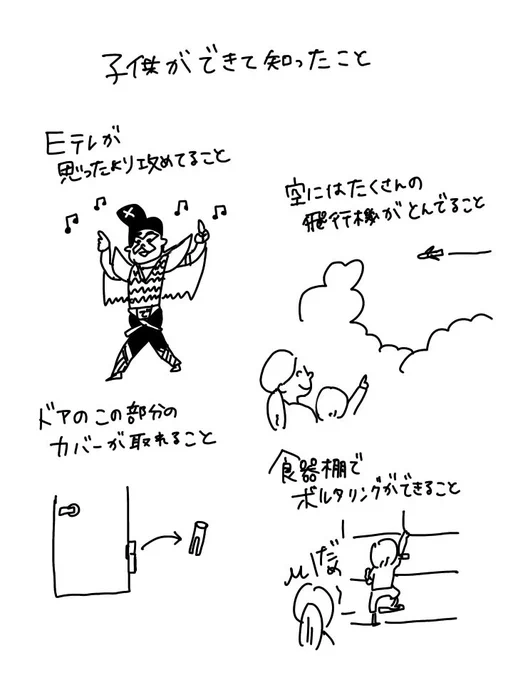 子供ができて知ったこと
Eテレが
思ったより攻めてること
空にはたくさんの
飛行機がとんでること
ドアのこの部分の
カバーが取れること
食器棚で
ボルタリングができること
だめ